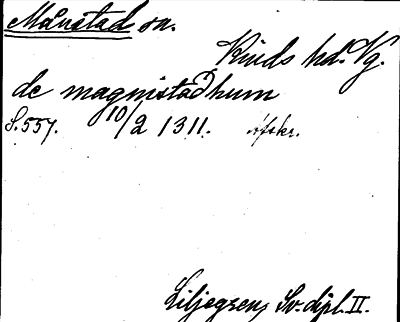 Månstad sn.
Kinds hd. Vg.
de magnistaðhum
S. 557. 10/2 1311. Afskr.
Liljegren, Sv. dipl. II.